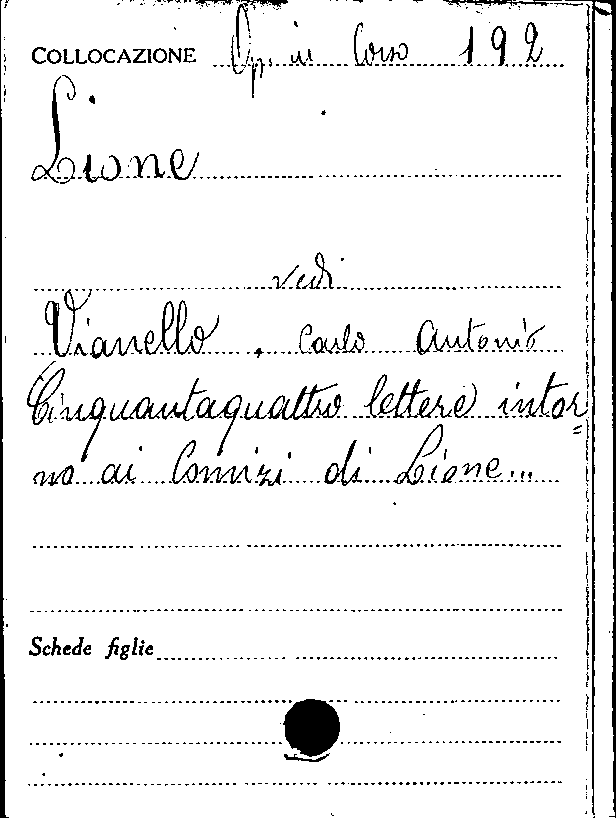 COLLOCAZIONE Op. in Corso 192
Lione
vedi
Vianello, Carlo Antonio
Cinquantaquattro lettere intor=
no ai Comizi di Lione...
Schede figlie